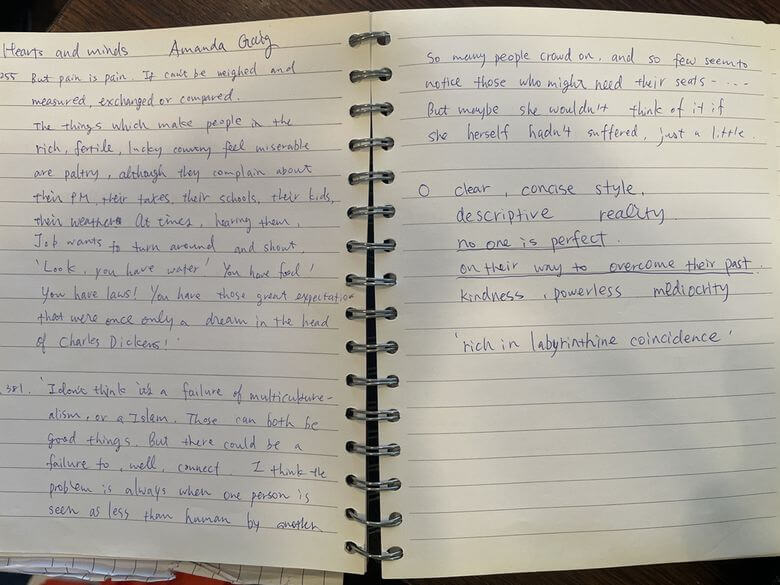 Hearts and minds Amanda Craig
255 But pain is pain. It can't be weighed and
measured, exchanged or compared.
The things which make people in the
rich, fertile, lucky country feel miserable
are paltry, although they complain about
their PM, their taxes, their schools, their kids,
their weather. At times, hearing them,
Job wants to turn around and shout,
'Look, you have water! You have food!
You have laws! You have those great expectation
that were once only a dream in the head
of Charles Dickens!'
381. 'I don't think it's a failure of multiculture-
alism, or a Islam. Those can both be
good things. But there could be a
failure to, well, connect. I think the
problem is always when one person is
seen as less than human by another
So many people crowd on, and so few seem to
notice those who might need their seats -....
But maybe she wouldn't think of it if
she herself hadn't suffered, just a little.
O clear, concise style,
descriptive reality.
no one is perfect.
on their way to overcome their past.
kindness, powerless mediocrity
'rich in labyrinthine coincidence'